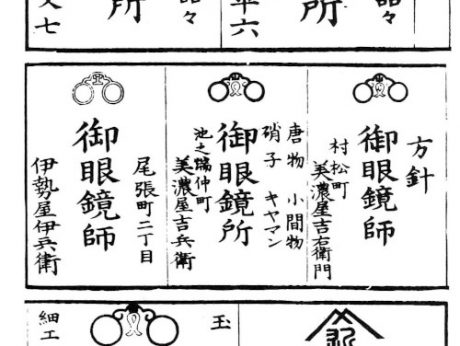 品々
所
六
品々
所
七
方針
御眼鏡師
村松町
美濃屋吉右衛門
唐物 小間物
硝子 キヤマン
御眼鏡所
池之端仲町
美濃屋吉兵衛
尾張町二丁目
御眼鏡師
伊勢屋伊兵衛
玉
細工